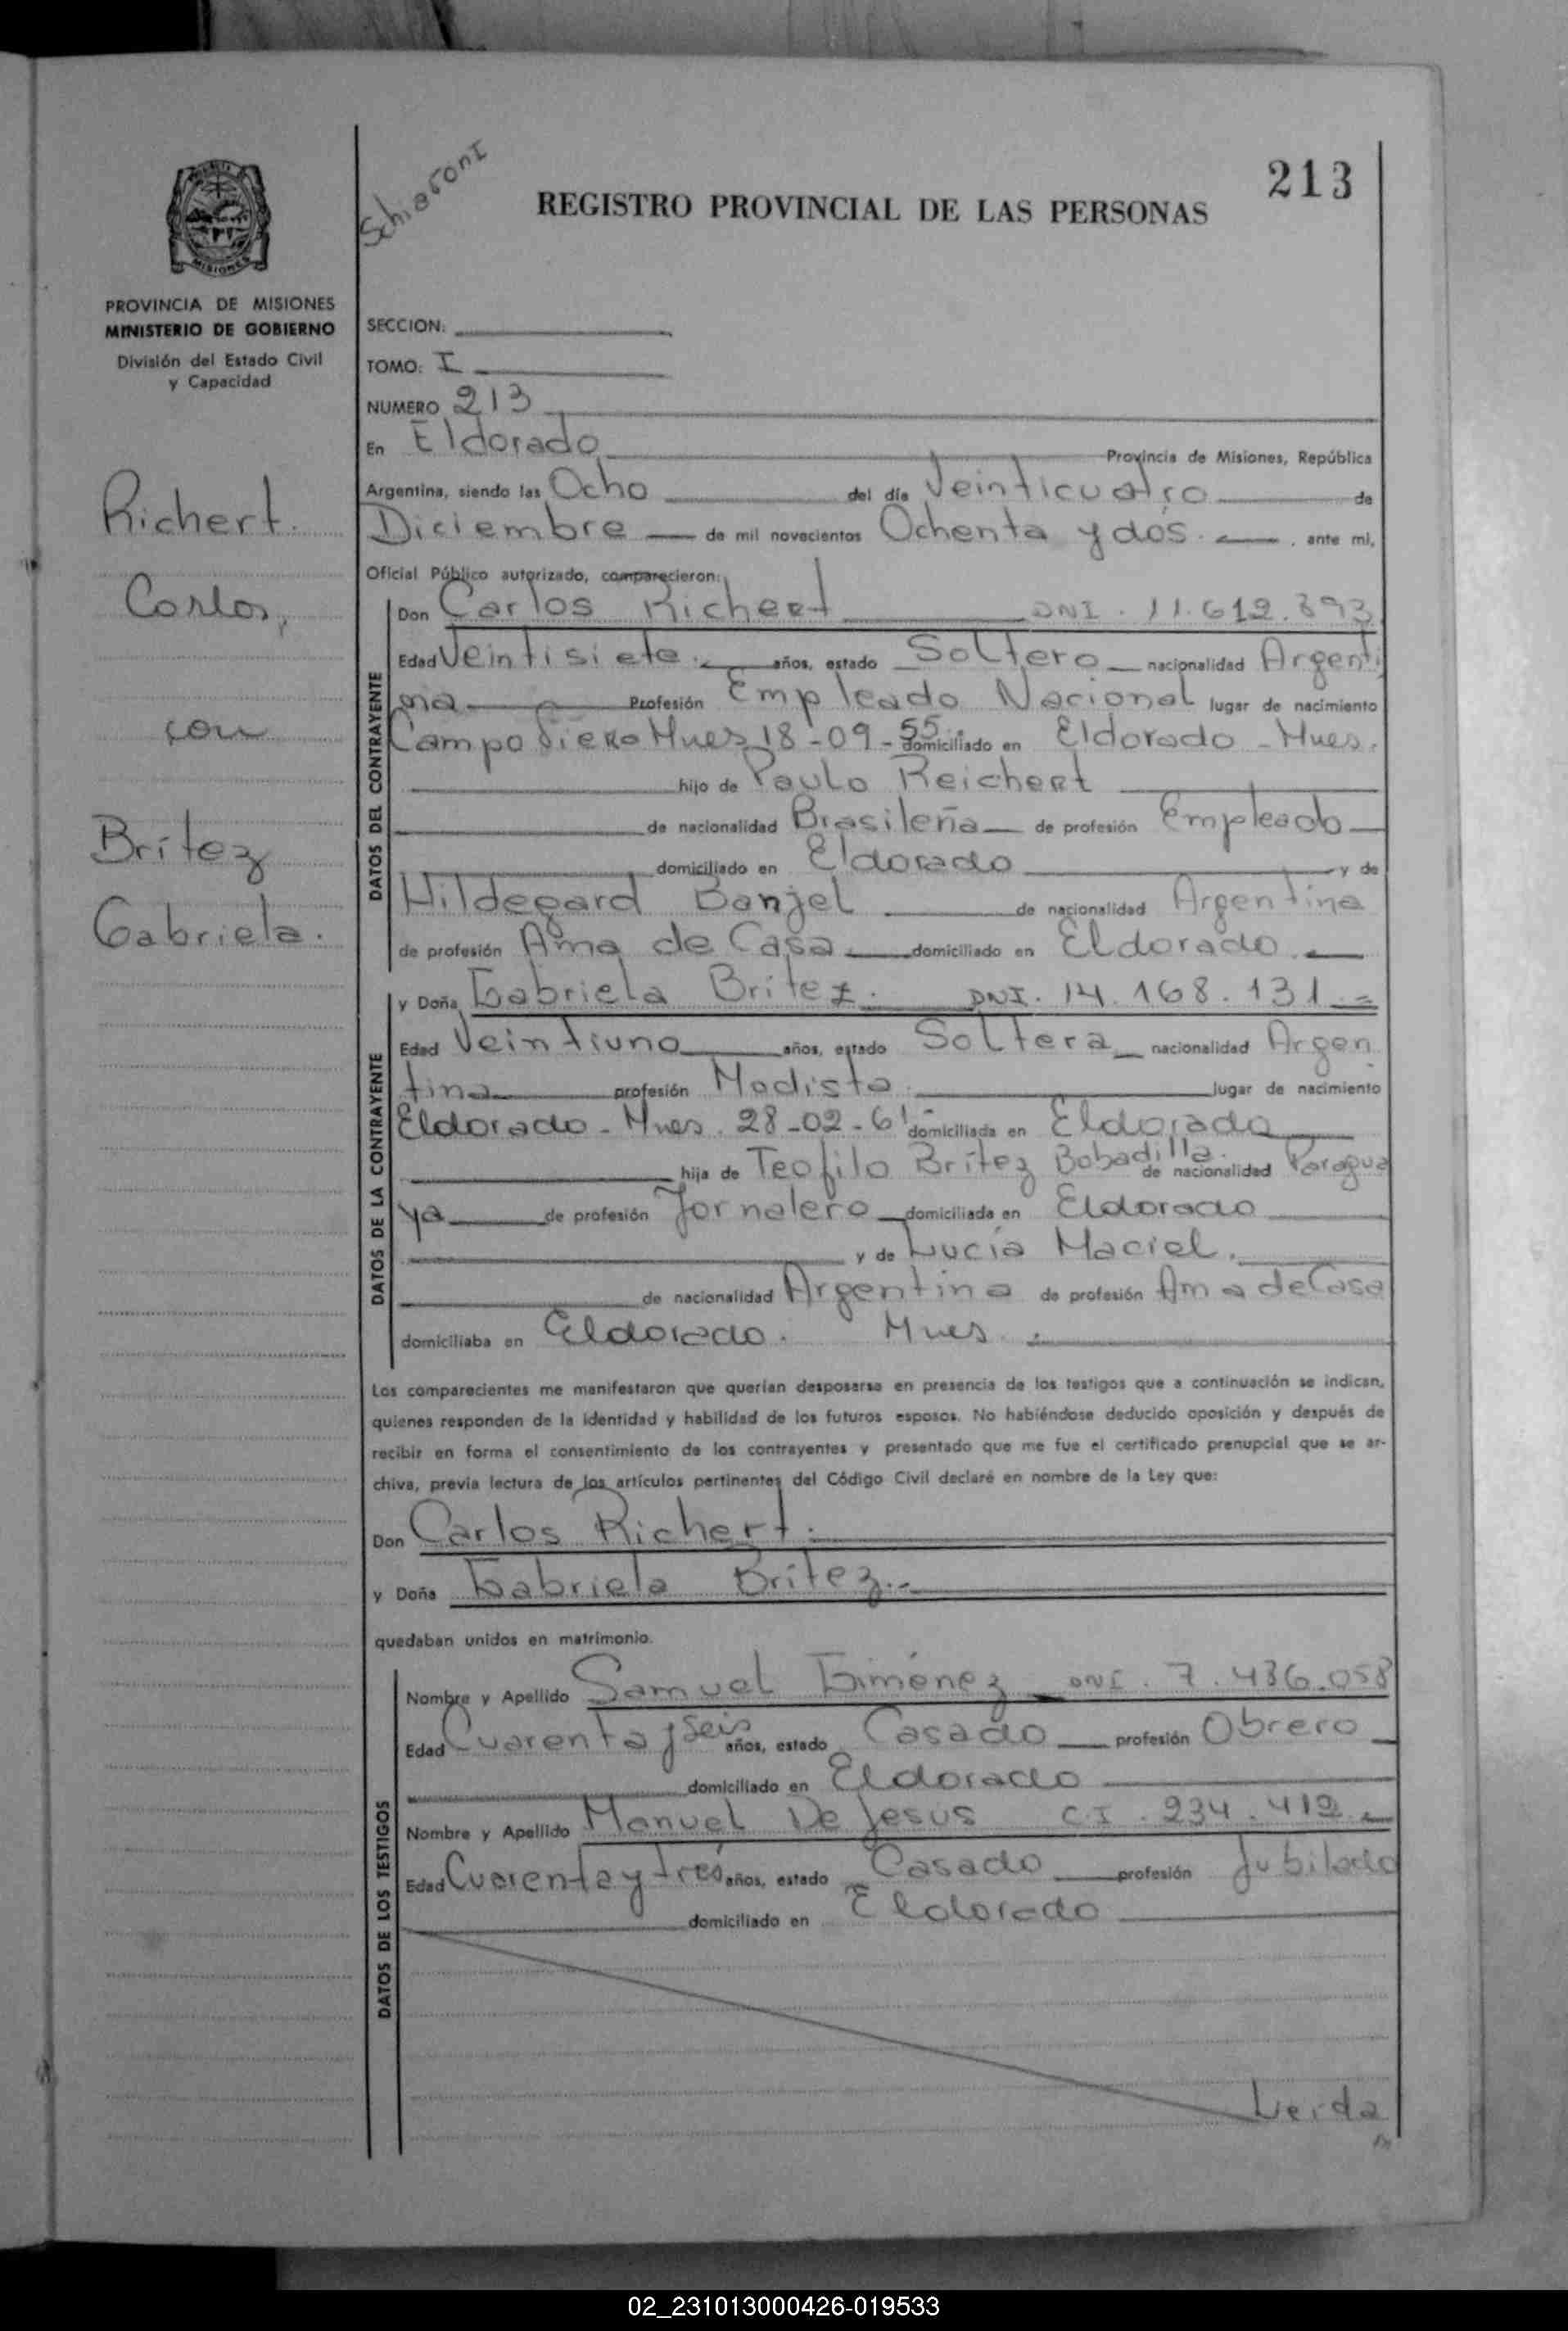 213
Schiaroni
REGISTRO PROVINCIAL DE LAS PERSONAS
MISIONES
PROVINCIA DE MISIONES
MINISTERIO DE GOBIERNO
División del Estado Civil
y Capacidad
Richert.
Carlos,
con
Brítez
Gabriela.
SECCION:
TOMO: I
NUMERO 213
En Eldorado Provincia de Misiones, República
Argentina, siendo las Ocho del día Veinticuatro de
Diciembre de mil novecientos Ochenta y dos. , ante mí,
Oficial Público autorizado, comparecieron:
DATOS DEL CONTRAYENTE
Don Carlos Richert DNI. 11.612.893
Edad Veintisiete. años, estado Soltero nacionalidad Argenti
na Profesión Empleado Nacional lugar de nacimiento
Campo Viera Mnes 18-09-55. domiciliado en Eldorado - Mnes.
hijo de Paulo Reichert
de nacionalidad Brasileña de profesión Empleado
domiciliado en Eldorado y de
Hildegard Banjel de nacionalidad Argentina
de profesión Ama de Casa domiciliado en Eldorado.
DATOS DE LA CONTRAYENTE
y Doña Gabriela Britez. DNI. 14.168.131
Edad Veintiuno años, estado Soltera nacionalidad Argen
tina profesión Modista. lugar de nacimiento
Eldorado - Mnes. 28-02-61 domiciliada en Eldorado
hija de Teofilo Brítez Bobadilla. de nacionalidad Paragua
ya de profesión Jornalero domiciliada en Eldorado
y de Lucía Maciel.
de nacionalidad Argentina de profesión Ama de Casa
domiciliaba en Eldorado. Mnes.
Los comparecientes me manifestaron que querían desposarse en presencia de los testigos que a continuación se indican,
quienes responden de la identidad y habilidad de los futuros esposos. No habiéndose deducido oposición y después de
recibir en forma el consentimiento de los contrayentes y presentado que me fue el certificado prenupcial que se ar-
chiva, previa lectura de los artículos pertinentes del Código Civil declaré en nombre de la Ley que:
Don Carlos Richert.
y Doña Gabriela Brítez.-
quedaban unidos en matrimonio.
DATOS DE LOS TESTIGOS
Nombre y Apellido Samuel Giménez DNI. 7.436.058
Edad Cuarenta y seis años, estado Casado profesión Obrero
domiciliado en Eldorado
Nombre y Apellido Manuel De Jesus C.I. 234.412
Edad Cuarenta y tres años, estado Casado profesión Jubilado
domiciliado en Eldorado
Leida
02_231013000426-019533